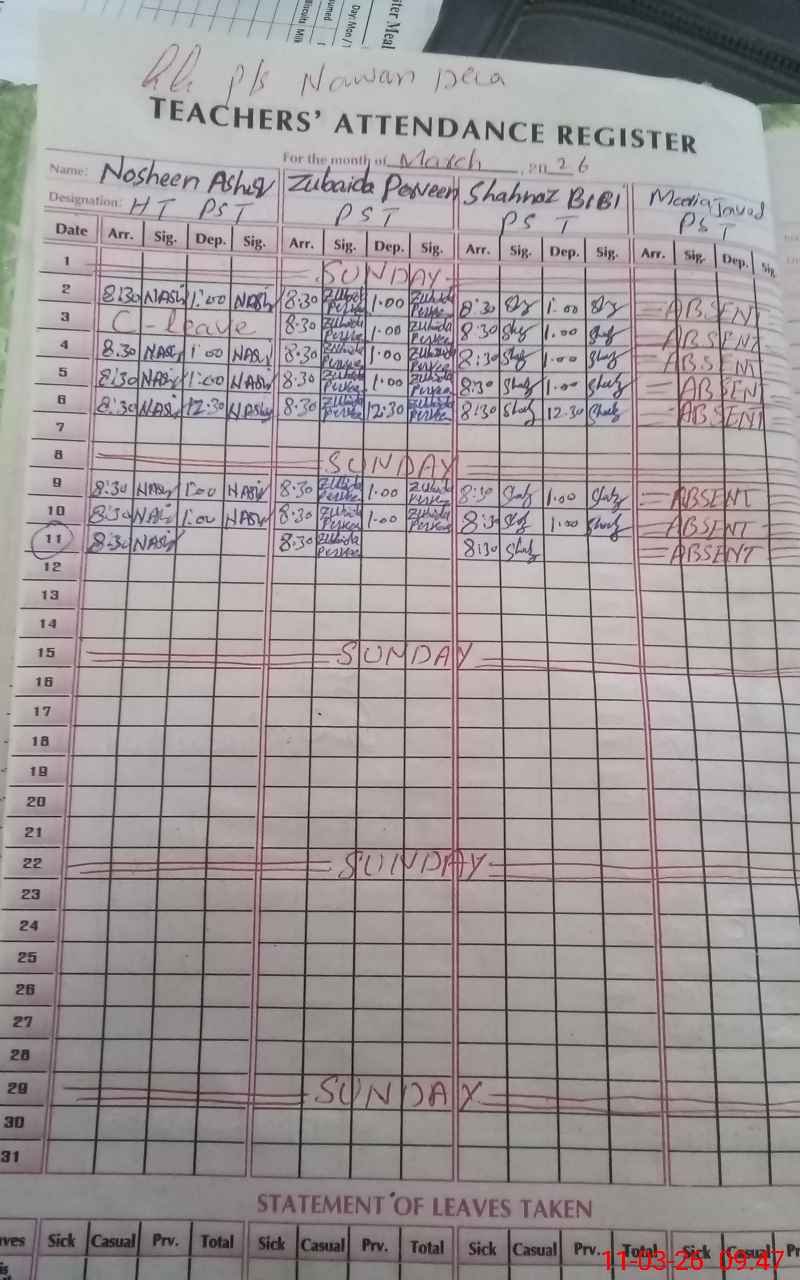 ster Meal
Day: Mon /
umed
Biscuits Milk
p/s Nawan Dera
TEACHERS' ATTENDANCE REGISTER
For the month of March, 2026
Name: Nosheen Zubaida Perveen Shahnaz BIBI Javed
Designation: HT PST PST PST PST
Date Arr. Sig. Dep. Sig. Arr. Sig. Dep. Sig. Arr. Sig. Dep. Sig. Arr. Sig. Dep. Sig
1 SUNDAY
2 8:30 NASH 1:00 NASH 8:30 Zubaida Perveen 1.00 Zubaida Perveen 8:30 1:00 ABSENT
3 C-leave 8:30 Zubaida Perveen 1.00 Zubaida Perveen 8:30 1.00 ABSENT
4 8:30 NASH 1:00 NASH 8:30 Zubaida Perveen 1:00 Zubaida Perveen 8:30 1.00 ABSENT
5 8:30 NASH 1:00 NASH 8:30 Zubaida Perveen 1.00 Zubaida Perveen 8:30 1.00 ABSENT
6 8:30 NASH 12:30 NASH 8:30 Zubaida Perveen 12:30 Zubaida Perveen 8:30 12.30 ABSENT
7
8 SUNDAY
9 8:30 NASH 1:00 NASH 8:30 Zubaida Perveen 1.00 Zubaida Perveen 8:30 1.00 ABSENT
10 8:30 NASH 1:00 NASH 8:30 Zubaida Perveen 1.00 Zubaida Perveen 8:30 1.00 ABSENT
11 8:30 NASH 8:30 Zubaida Perveen 8:30 ABSENT
12
13
14
15 SUNDAY
16
17
18
19
20
21
22 SUNDAY
23
24
25
26
27
28
29 SUNDAY
30
31
STATEMENT OF LEAVES TAKEN
ves Sick Casual Prv. Total Sick Casual Prv. Total Sick Casual Prv. Total Sick Casual Pr
11-03-26 09:47